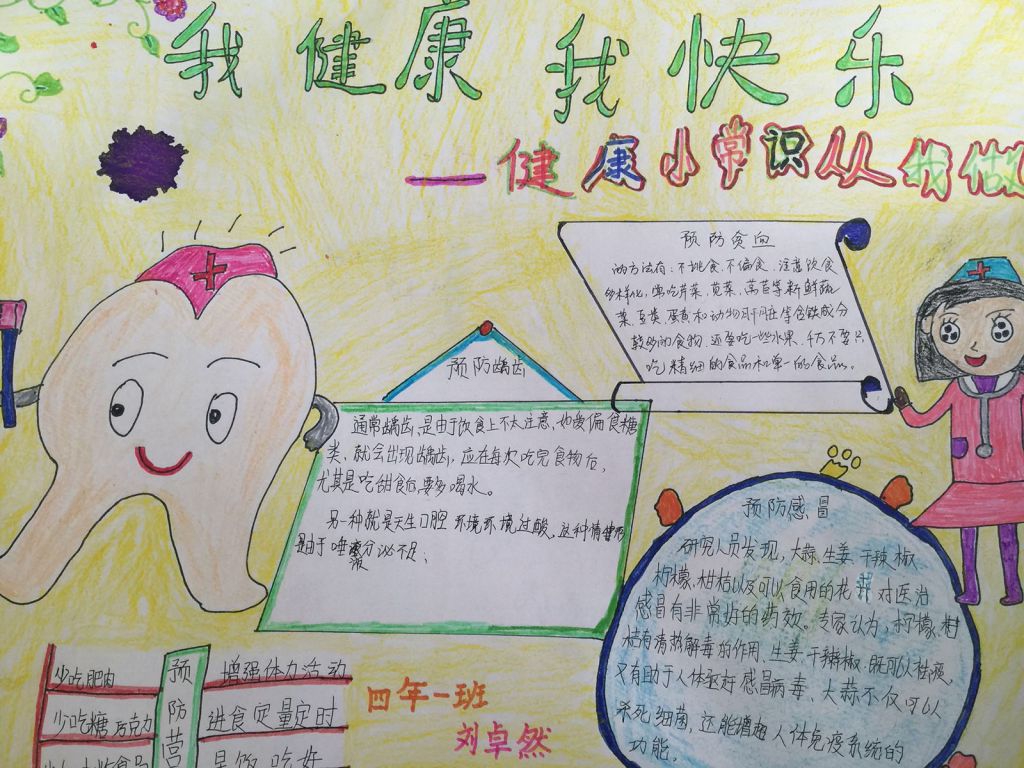 我健康我快乐
—健康小常识从我做
预防贫血
的方法有：不挑食、不偏食、注意饮食
多样化，常吃芹菜、苋菜、莴苣等新鲜蔬
菜、豆类、蛋黄和动物肝脏等含铁成分
较多的食物，还要吃一些水果，千万不要只
吃精细的食品和单一的食品。
预防龋齿
通常龋齿，是由于饮食上不太注意，也爱偏食糖
类，就会出现龋齿，应在每次吃完食物后，
尤其是吃甜食后要多喝水。
另一种就是天生口腔环境环境过酸，这种情
是由于唾液分泌不足、
预防感冒
研究人员发现，大蒜、生姜、干辣椒
柠檬、柑桔以及可以食用的花 对医治
感冒有非常好的药效。专家认为，柠檬、柑
桔有清热解毒的作用、生姜、干辣椒既可以祛痰，
又有助于人体 感冒病毒、大蒜不仅可以
杀死细菌，还能增 人体免疫系统的
功能。
预防营
少吃肥肉
少吃糖 巧克力
增强体力活动
进食定量定时
四年一班
刘卓然